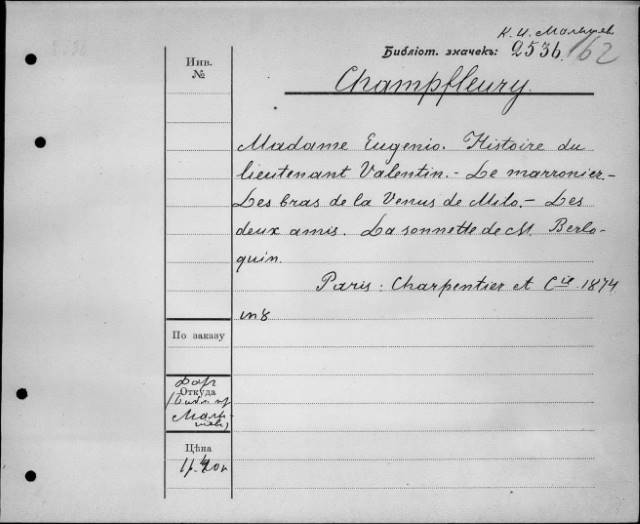 К. И. Малышев
Библіот. значекъ: 2536. 162
Инв.
№
Champfleury.
Madame Eugenio. Histoire du
lieutenant Valentin. - Le marronier. -
Les bras de la Venus de Milo. - Les
deux amis. La sonnette de M. Berlo-
quin.
Paris: Charpentier et Cie 1874
in 8
По заказу
Даръ
Откуда
Малы-
шева
Цѣна